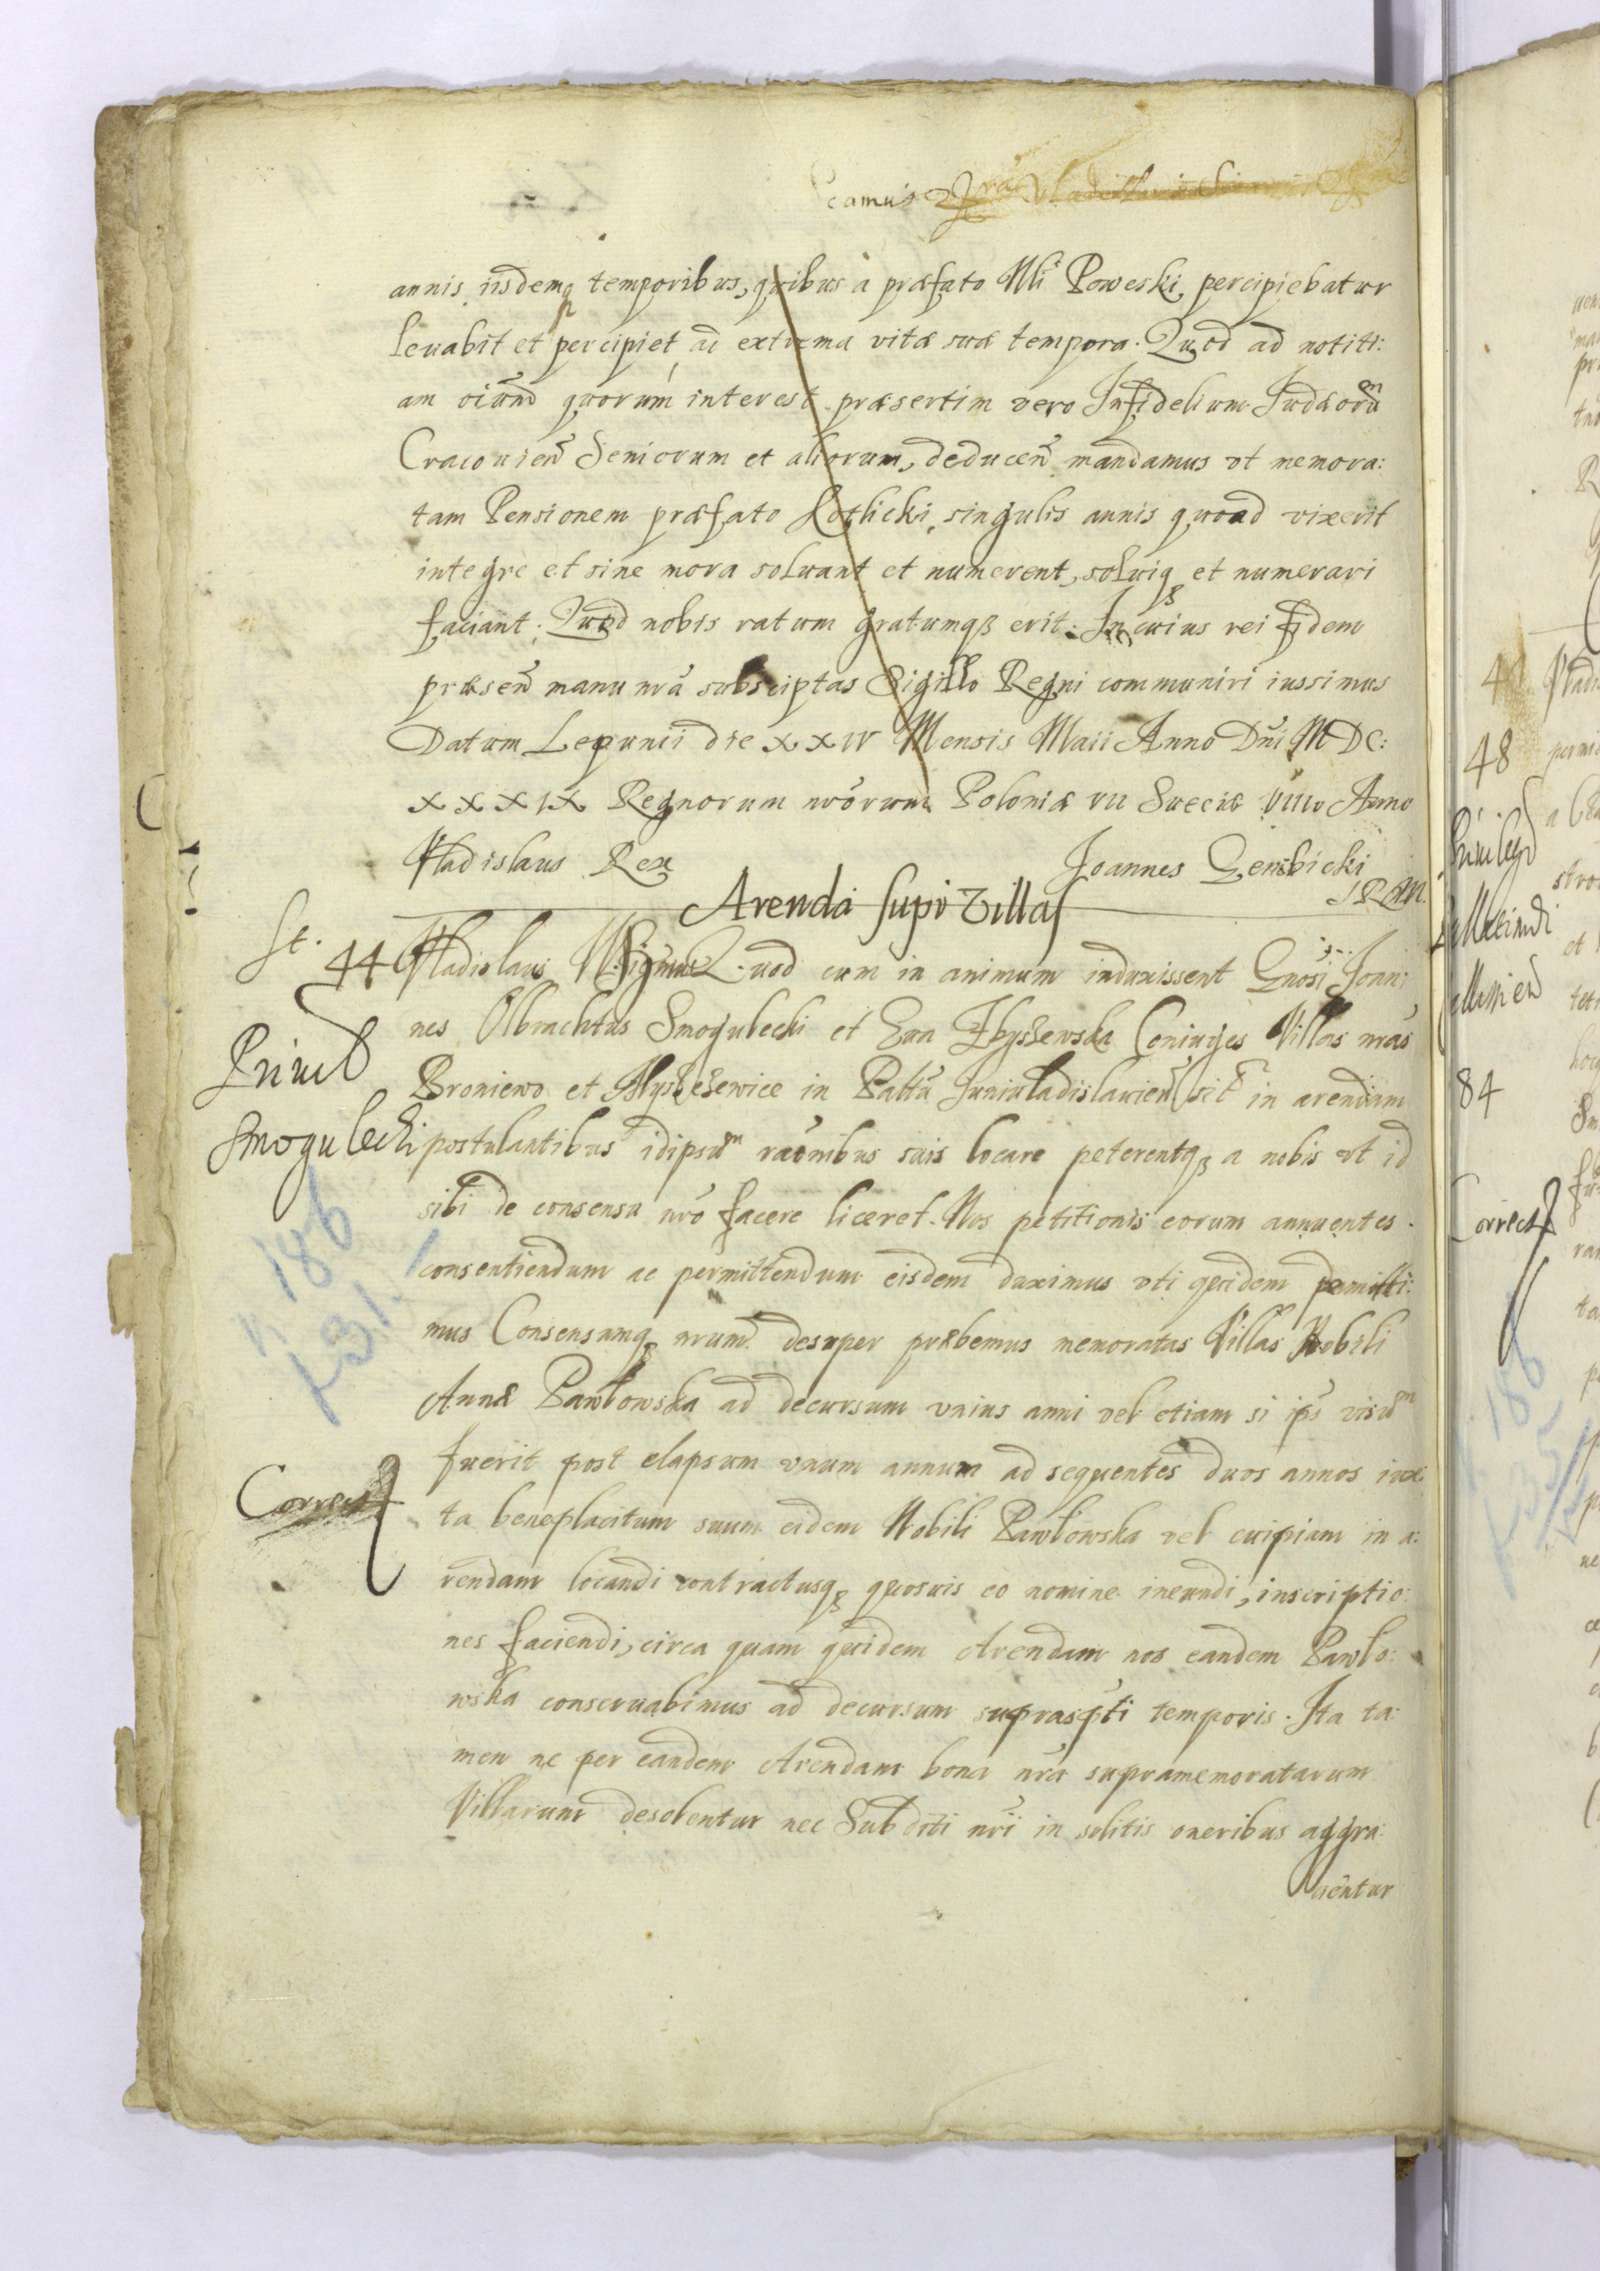 camus
annis iisdemq temporibus, quibus a præfato Mli Poweski percipiebatur
levabit et percipiet ac extrema vitæ suæ tempora. Quod ad notiti:
am oium quorum interest præsertim vero Infidelium Judæorum
Cracovien Seniorum et aliorum, deducen mandamus vt memora:
tam Pensionem præfato Kotlicki singulis annis quoad vixerit
integre et sine mora solvant et numerent, solviq et numerari
faciant. Quod nobis ratum gratumq erit. In cuius rei fidem
præsen manu nra subsciptas Sigillo Regni communiri iussimus
Datum Lepuncii die XXIV Mensis Maii Anno Dni MDC:
XXXIX Regnorum nrorum Poloniæ VII Sueciæ VIII Anno
Vladislaus Rex Joannes Gembicki
Arenda supr Villas
44 Vladislaus Signus Quod cum in animum induxissent Gnosi Joan:
nes Olbrachtus Smogulecki et Eva Zbyszewska Coniuges Villas nras
Broniewo et in Pallu Juniuladislavien sit in arendam
Privil
Smogulecki
postulantibus idipsum raonibus suis locare peterentq a nobis vt id
sibi de consensu nro facere liceret. Nos petitionis eorum annuentes
consentiendum ac permittendum eisdem duximus vti quidem permitti:
mus Consensumq nrum desuper præbemus memoratas Villas Nobili
Annæ Pawłowska ad decursum vnius anni vel etiam si ips visum
fuerit post elapsum vnum annum ad sequentes duos annos iux
Correct
ta beneplacitum suum eidem Nobili Pawłowska vel cuipiam in a:
rendam locandi contractusq quosvis eo nomine ineundi, inscriptio:
nes faciendi, circa quam quidem Arendam nos eandem Pawło:
wska conservabimus ad decursum suprascpti temporis. Ita ta:
men ne per eandem Arendam bona nra supramemoratarum
Villarum desolentur nec Subditi nri in solitis oneribus aggra:
uentur
186
48
84
Correct
186